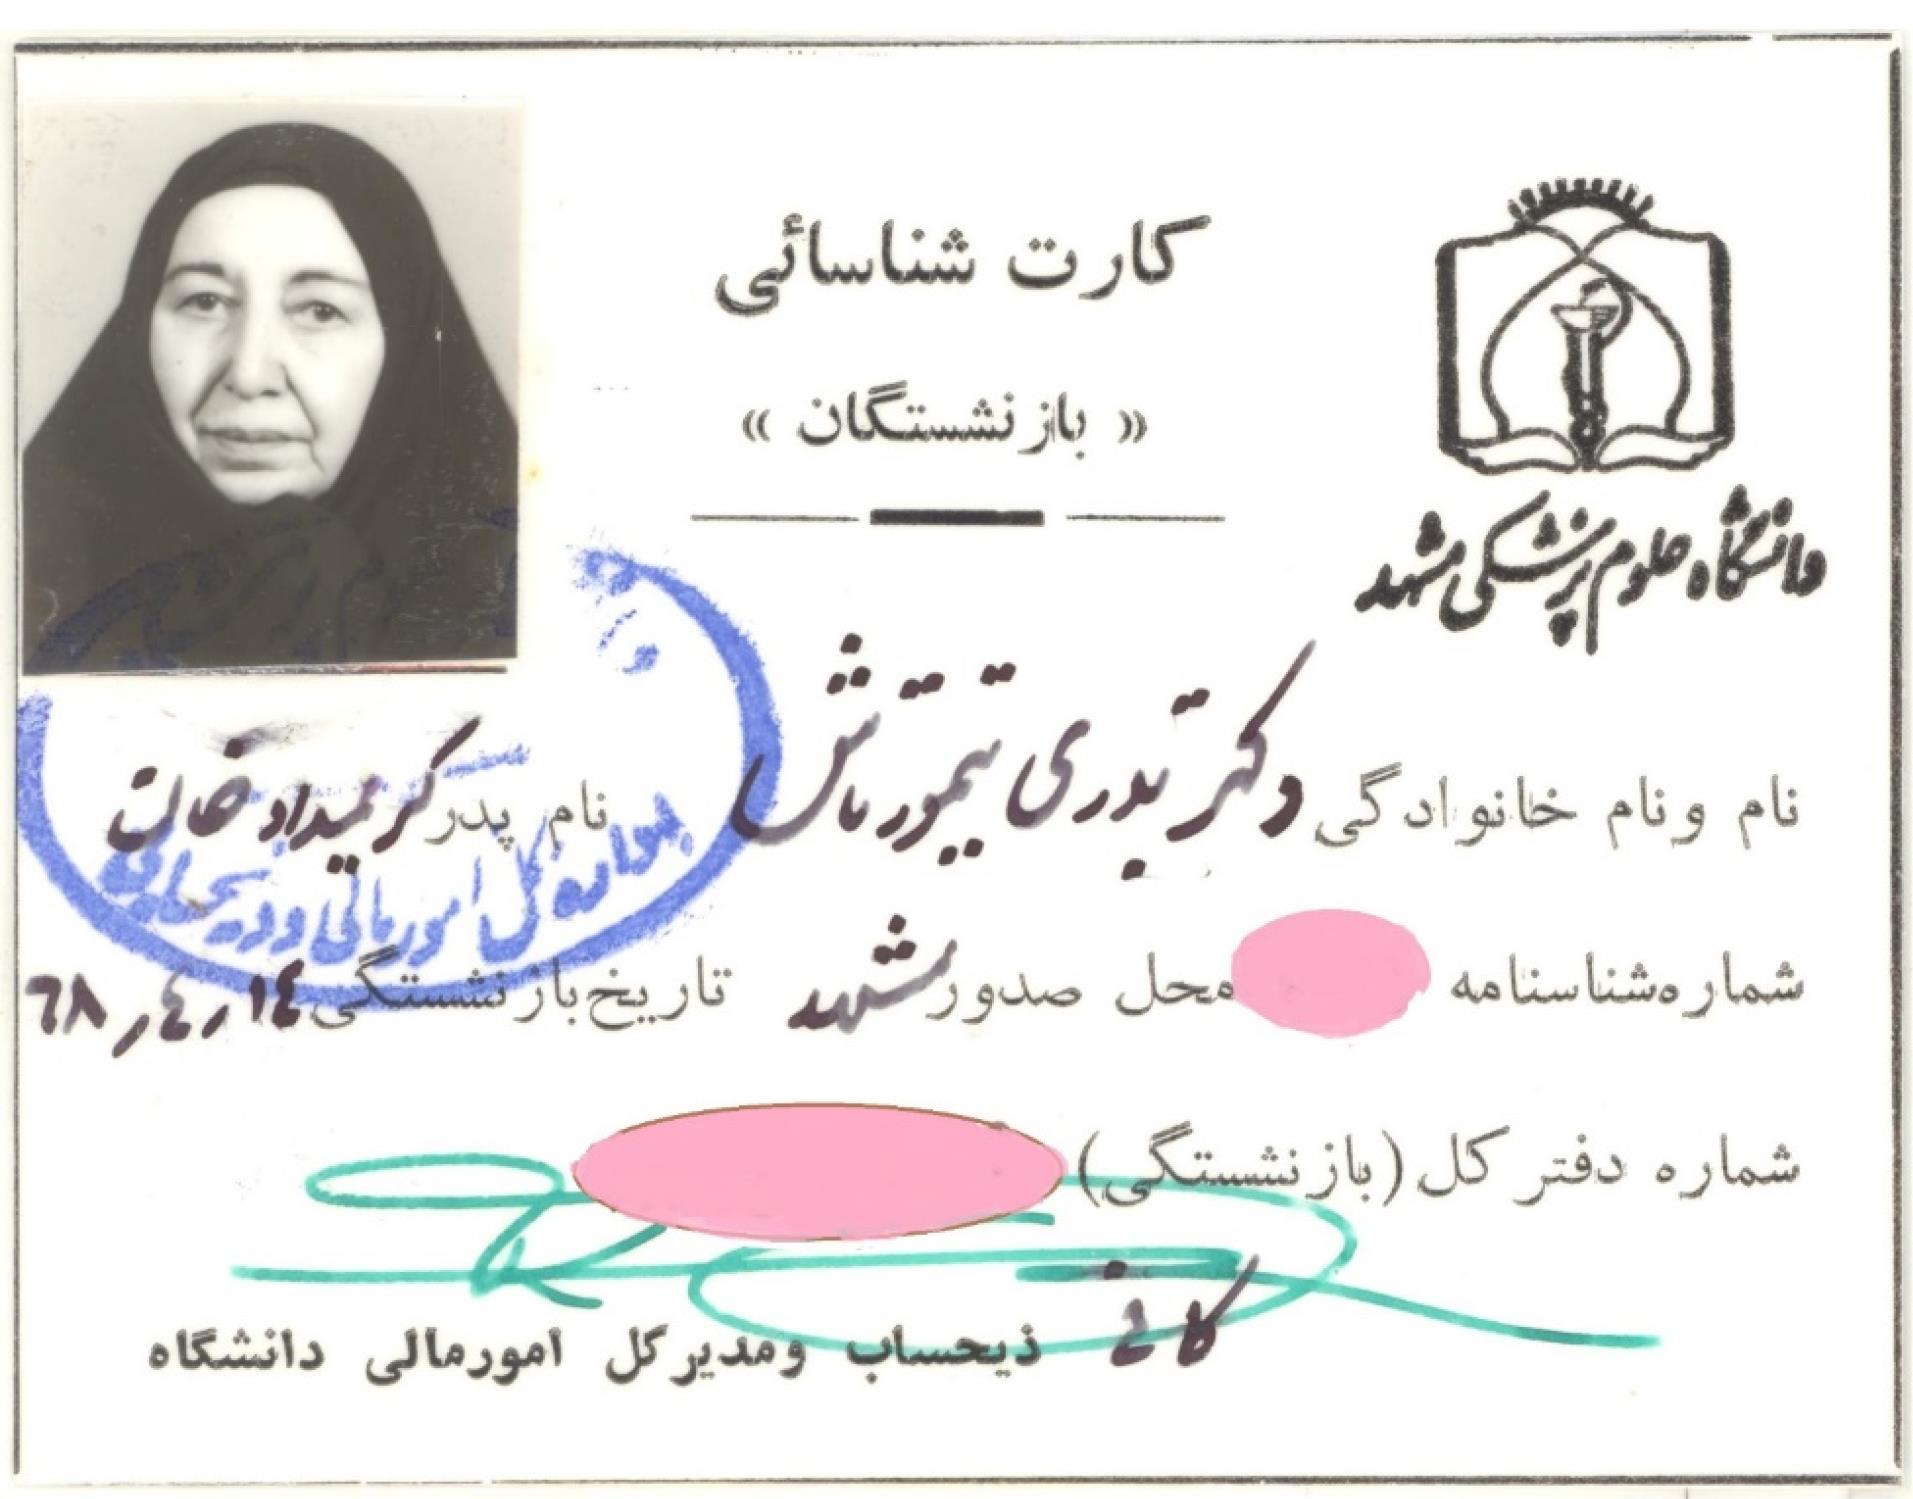 کارت شناسائی
« بازنشستگان »
دانشگاه علوم پزشکی مشهد
نام و نام خانوادگی دکتر بدری تیمورتاش نام پدر کریمداد خان
شماره شناسنامه محل صدور مشهد تاریخ بازنشستگی ۱٤ر٤ر۶۸
شماره دفتر کل (بازنشستگی)
ذیحساب و مدیر کل امور مالی دانشگاه
کل امور مالی و ذیحسابی